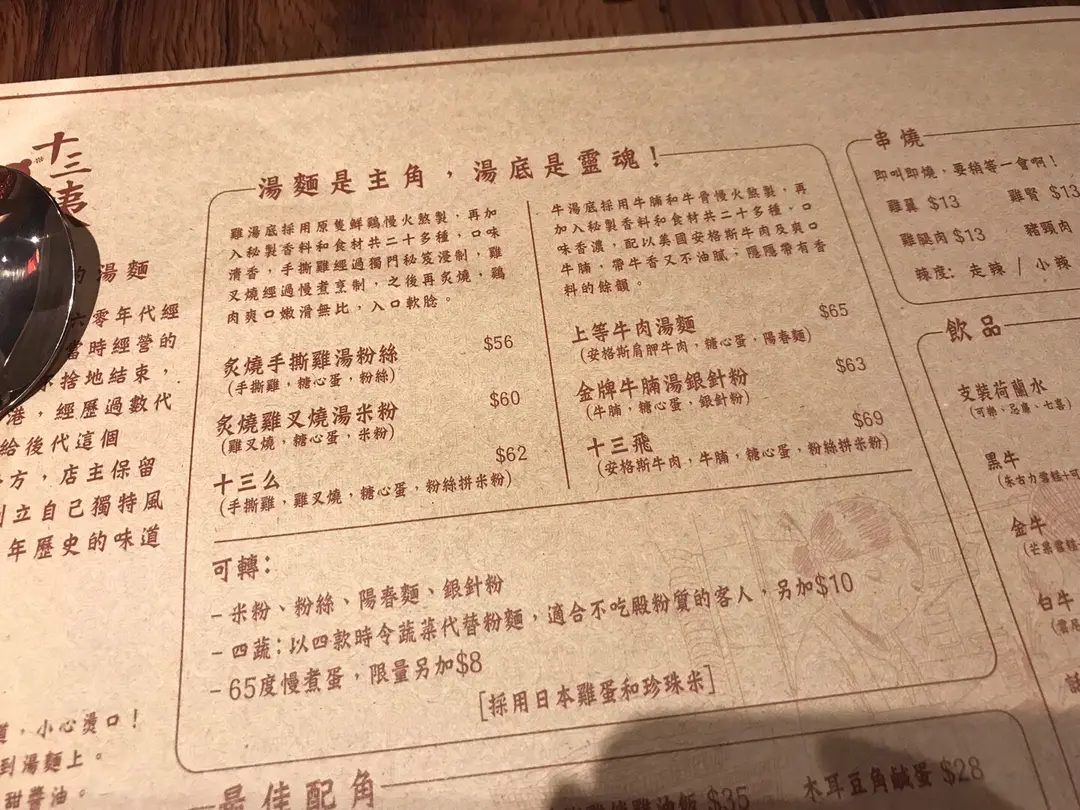 十三
湯麵
六零年代經
當時經營的
捨地結束，
港，經歷過數代
給後代這個
方，店主保留
創立自己獨特風
年歷史的味道
，小心燙口！
到湯麵上。
甜醬油。
湯麵是主角，湯底是靈魂！
雞湯底採用原隻鮮鷄慢火熬製，再加
入秘製香料和食材共二十多種，口味
清香，手撕雞經過獨門秘笈浸制，雞
叉燒經過慢煮烹制，之後再炙燒，鷄
肉爽口嫩滑無比，入口軟腍。
炙燒手撕雞湯粉絲 $56
(手撕雞，糖心蛋，粉絲)
炙燒雞叉燒湯米粉 $60
(雞叉燒，糖心蛋，米粉)
十三么 $62
(手撕雞，雞叉燒，糖心蛋，粉絲拼米粉)
牛湯底採用牛腩和牛骨慢火熬製，再
加入秘製香料和食材共二十多種，口
味香濃，配以美國安格斯牛肉及爽口
牛腩，帶牛香又不油膩，隱隱帶有香
料的餘韻。
上等牛肉湯麵 $65
(安格斯肩胛牛肉，糖心蛋，陽春麵)
金牌牛腩湯銀針粉 $63
(牛腩，糖心蛋，銀針粉)
十三飛 $69
(安格斯牛肉，牛腩，糖心蛋，粉絲拼米粉)
可轉：
- 米粉、粉絲、陽春麵、銀針粉
- 四蔬：以四款時令蔬菜代替粉麵，適合不吃殿粉質的客人，另加$10
- 65度慢煮蛋，限量另加$8
[採用日本雞蛋和珍珠米]
串燒
即叫即燒，要稍等一會啊！
雞翼 $13 雞腎 $13
雞腿肉 $13 豬頸肉
辣度：走辣 / 小辣
飲品
支裝荷蘭水
(可樂，忌廉，七喜)
黑牛
(朱古力雪糕+可
金牛
(芒果雪糕
白牛
最佳配角
油飯 $35 木耳豆角鹹蛋 $28